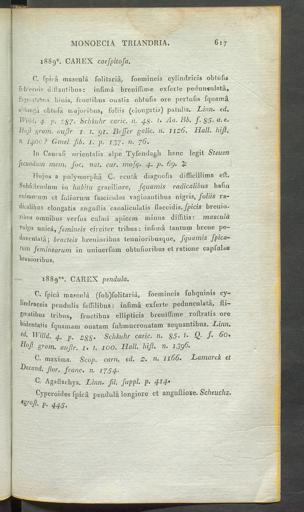 MONOECIA TRIANDRIA. 617
1889*. CAREX caespitosa.
C. spica mascula solitaria, foemineis cylindricis obtusis
distantibus: infima brevissime exserte pedunculata,
binis, fructibus ovatis obtusis ore pertuso squama
obtusa majoribus, foliis (elongatis) patulis. Linn. ed.
Willd. 4. p. 287. Schkuhr caric. n. 48. t. Aa. Bb. f. 85. a. c.
Host gram. austr. 1. t. 91. Besser galic. n. 1126. Hall. hist.
n. 1400? Gmel sib. 1. p. 137. n. 76.
In Caucasi orientalis alpe Tufendagh hanc legit Steven
secundum mem. soc. nat. cur. mosq. 4. p. 69. ♃
Hujus a polymorpha C. acuta diagnosis difficillima est.
Subinde in habitu graciliore, squamis radicalibus basin
culmorum et foliorum fasciculos vaginantibus nigris, foliis ra-
dicalibus elongatis angustis canaliculatis flaccidis, spicis brevio-
ribus omnibus versus culmi apicem minus dissitis: mascula
vulgo unica, femineis circiter tribus: infima tantum breve pe-
dunculata; bracteis brevioribus tenuioribusque, squamis spica-
rum feminearum in universum obtusioribus et ratione capsulae
brevioribus.
1889**. CAREX pendula.
C. spica mascula (sub)solitaria, foemineis subquinis cy-
lindraceis pendulis sessilibus: infima exserte pedunculata, sti-
gmatibus tribus, fructibus ellipticis brevissime rostratis ore
bidentatis squamam ovatam submucronatam aequantibus. Linn.
ed. Willd. 4. p. 288. Schkuhr caric. n. 85. t. Q. f. 60.
Host gram. austr. 1. t. 100. Hall. hist. n. 1396.
C. maxima. Scop. carn. ed. 2. n. 1166. Lamarck et
Decand. flor. franc. n. 1754.
C. Agastachys. Linn. fil. suppl. p. 414.
Cyperoides spica pendula longiore et angustiore. Scheuchz.
agrost. p. 445.